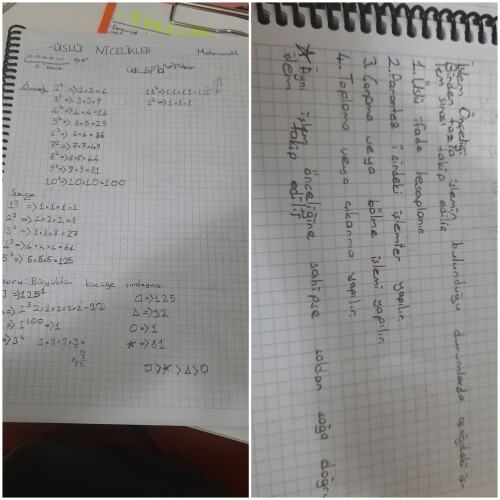 -ÜSLÜ NİCELİKLER- Matematik
n tane
2² => 2×2=4
3² => 3×3=9
4² => 4×4=16
5² => 5×5=25
6² => 6×6=36
7² => 7×7=49
8² => 8×8=64
9² => 9×9=81
10² => 10×10=100
1² => 1×1=1
1³ => 1×1×1=1
2³ => 2×2×2=8
3³ => 3×3×3=27
4³ => 4×4×4=64
5³ => 5×5×5=125
Büyükten küçüğe sıralayınız
□ => 125¹
=> 2⁵ 2×2×2×2×2=32
=> 1¹⁰⁰ => 1
=> 3⁴ 3×3×3×3=
□ => 125
△ => 32
O => 1
* => 81
□ > * > △ > O
İşlem Önceliği
Birden fazla işlemin bulunduğu durumlarda aşağıdaki iş-
lem sırası takip edilir
1. Üslü ifade hesaplanır
2. Parantez içindeki işlemler yapılır
3. Çarpma veya bölme işlemi yapılır
4. Toplama veya çıkarma yapılır.
* Aynı işlem önceliğine sahipse soldan sağa doğru
işlem takip edilir